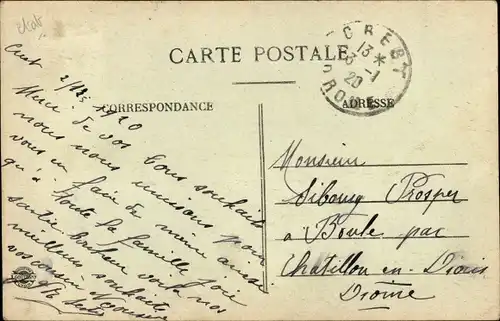 CARTE POSTALE
CREST
13 *
3 -1
20
DROME
CORRESPONDANCE
ADRESSE
Crest
1920
Merci de vos bons souhaits
nous nous unissons pour
vous en faire de même ainsi
qu'à toute la famille joie
santé bonheur voilà nos
meilleurs souhaits
vos cousin
Monsieur
Sibourg Prosper
à Boule par
Chatillon en Diois
Drôme